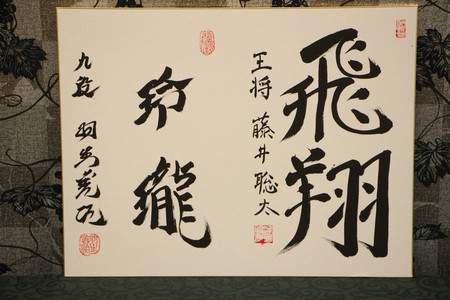 飛翔
王将 藤井聡太
玲瓏
九段 羽生善治